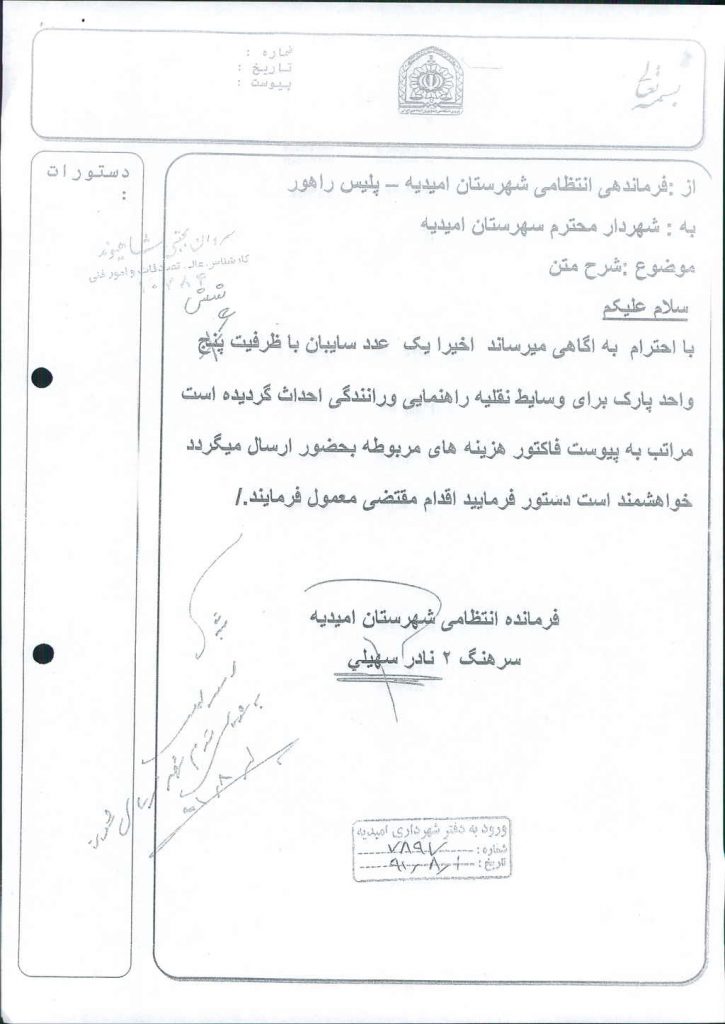 بسمه تعالی
شماره :
تاریخ :
پیوست :
دستورات :
از :فرماندهی انتظامی شهرستان امیدیه – پلیس راهور
به : شهردار محترم سهرستان امیدیه
موضوع :شرح متن
سلام علیکم
با احترام به اگاهی میرساند اخیرا یک عدد سایبان با ظرفیت پنج
واحد پارک برای وسایط نقلیه راهنمایی ورانندگی احداث گردیده است
مراتب به پیوست فاکتور هزینه های مربوطه بحضور ارسال میگردد
خواهشمند است دستور فرمایید اقدام مقتضی معمول فرمایند./
فرمانده انتظامی شهرستان امیدیه
سرهنگ ۲ نادر سهیلی
شش
کارشناس عالی تصادفات و امور فنی
ورود به دفتر شهرداری امیدیه
شماره : ۷۸۹۷
تاریخ : ۹۱٫۸٫۱